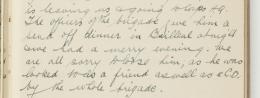 is leaving us & going to Corps HQ.
The officers of the brigade give him a
send off dinner in Bailleul at night
and had a merry evening. We
are all sorry to lose him, as he was
looked to as a friend as well as a C.O.
by the whole brigade.